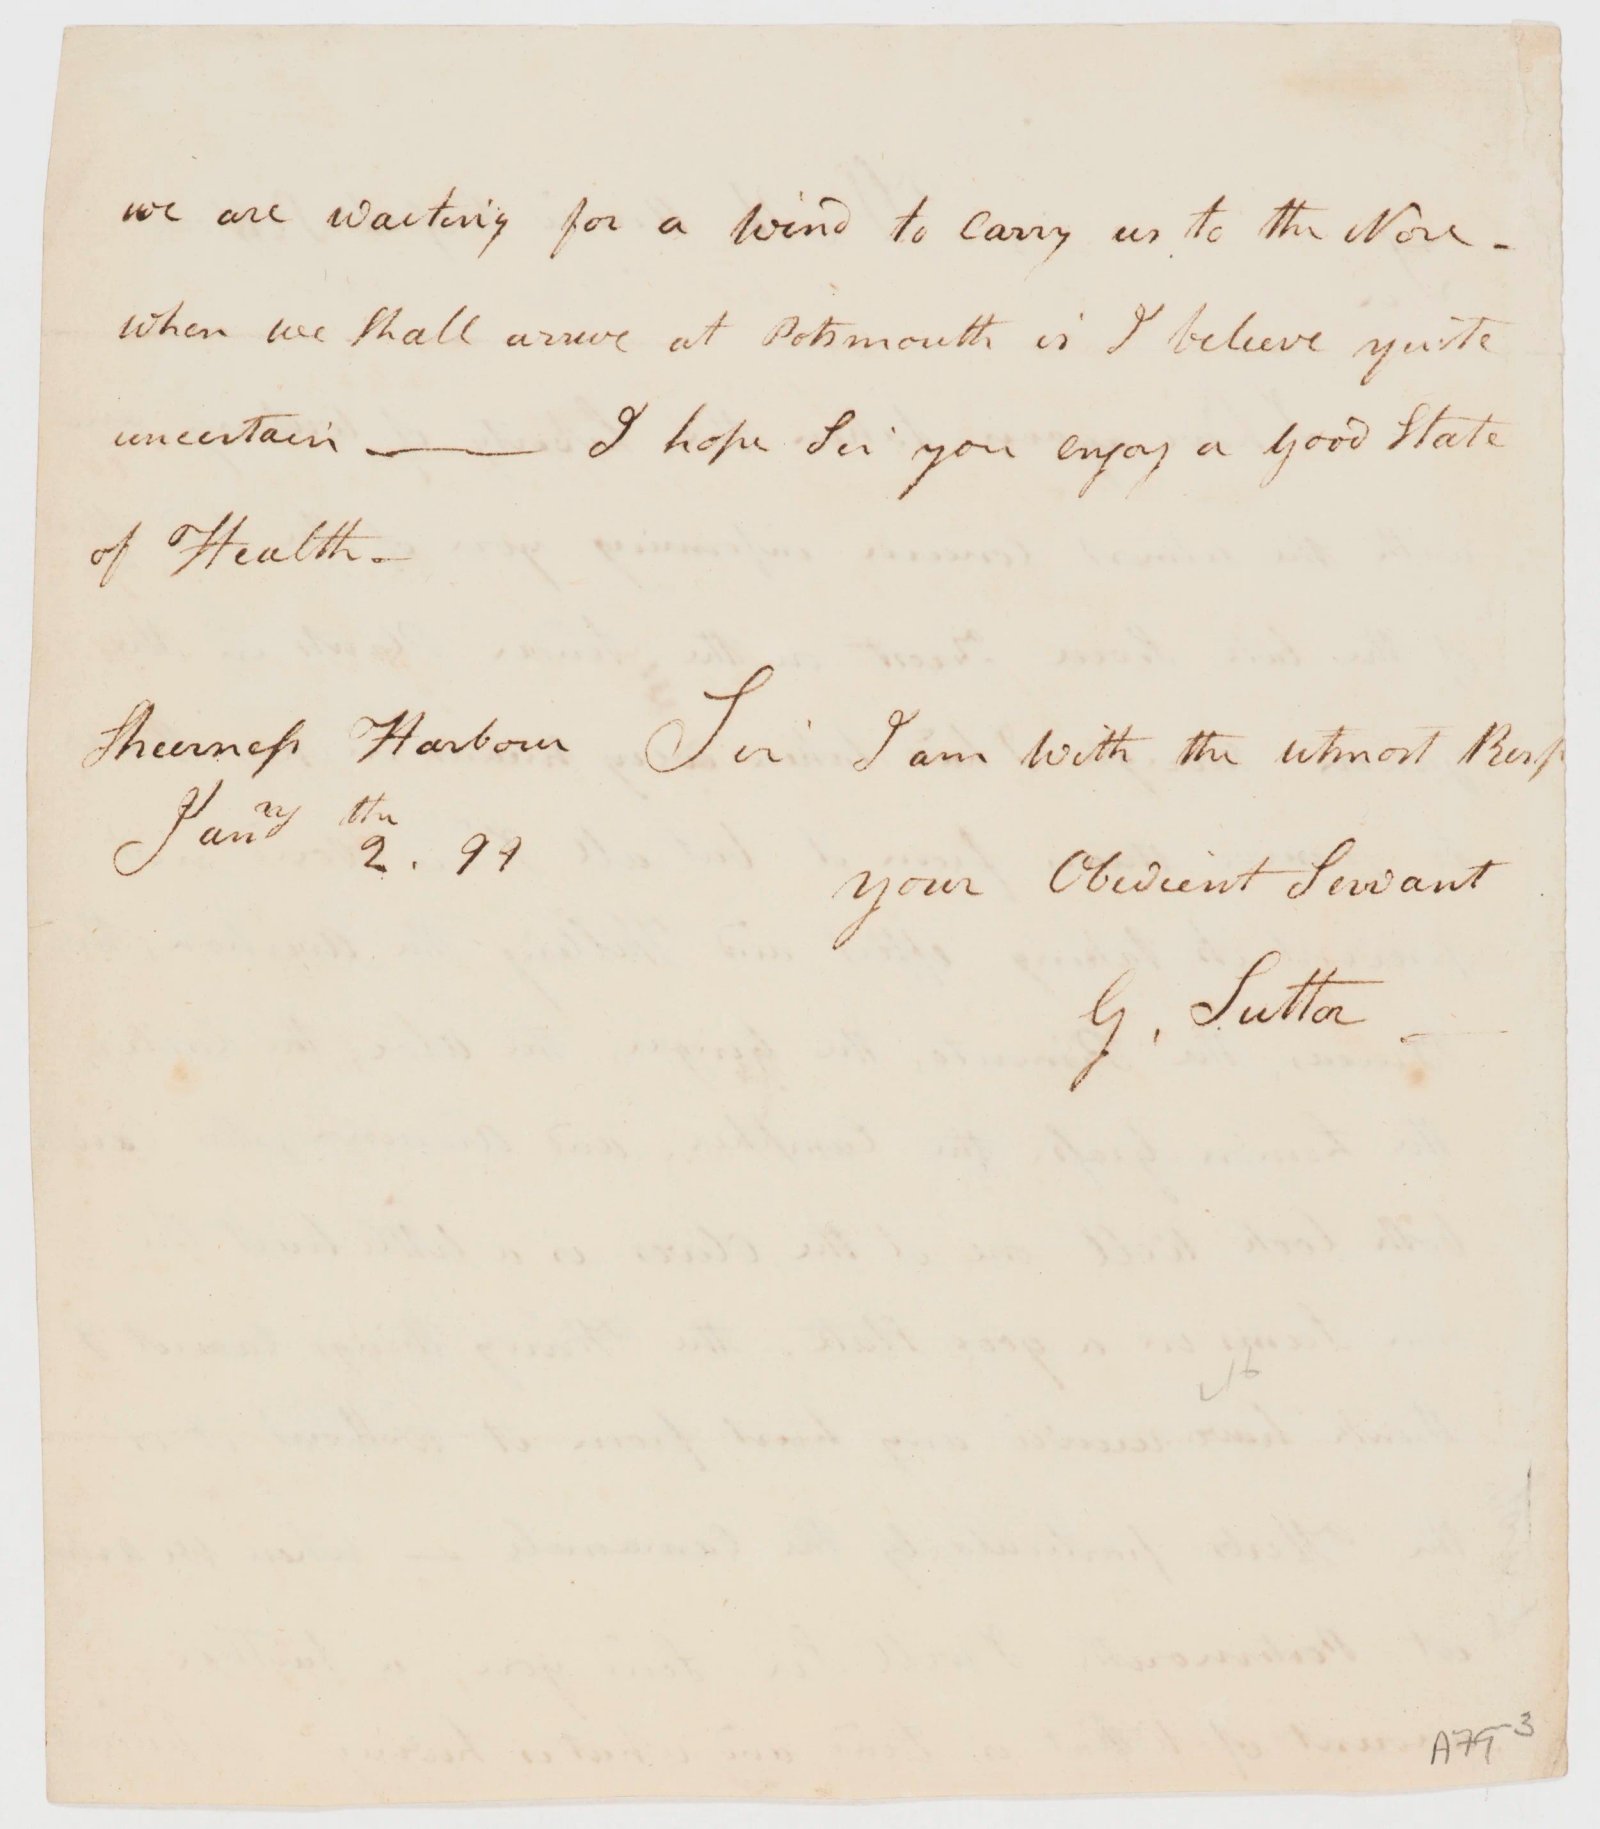 we are waiting for a wind to Carry us to the Nore -
when we Shall arrive at Potsmouth is I believe quite
uncertain —— I hope Sir you enjoy a good State
of Health -
Sheerness Harbour Sir I am with the utmost Resp
Janry 2th. 99
your Obedient Servant
G, Suttor —
A79-3